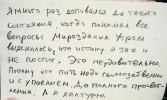 Я много раз допивался до такого
состояния, когда понимал все
вопросы Мироздания. Утром
выяснялось, что истину я так и
не постиг. Это неудивительно,
потому что пить надо самозабвенно
и с упоением. До полного просвет
ления. А я халтурю.